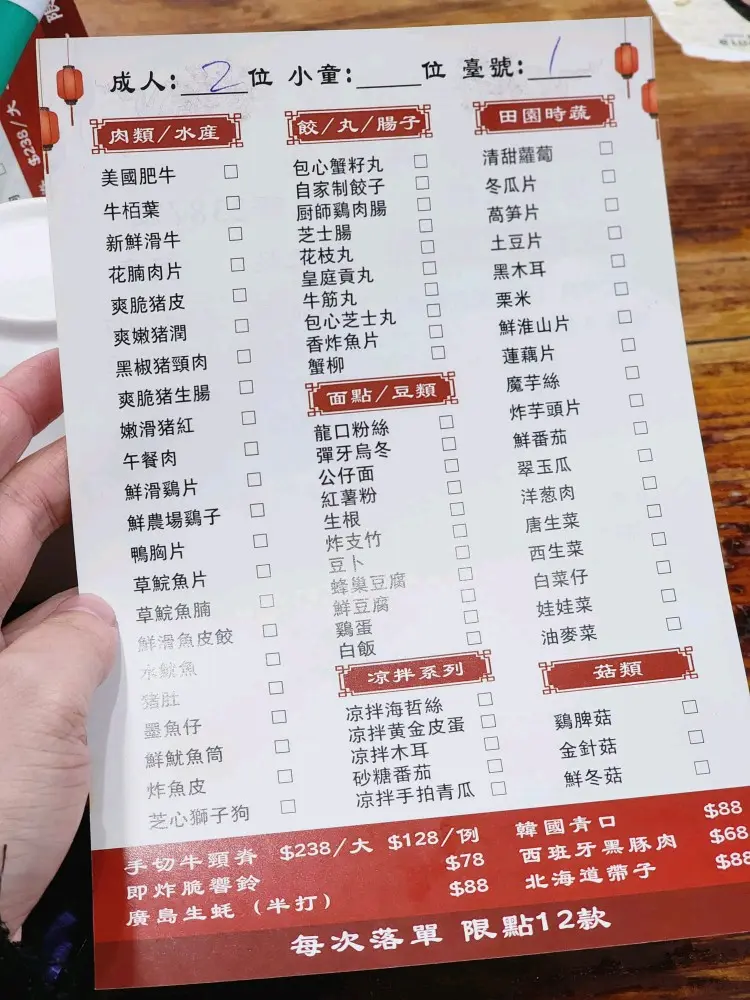 成人: 2 位 小童: 位 臺號: 1
肉類/水産
美國肥牛
牛栢葉
新鮮滑牛
花腩肉片
爽脆猪皮
爽嫩猪潤
黑椒猪頸肉
爽脆猪生腸
嫩滑猪紅
午餐肉
鮮滑鷄片
鮮農場鷄子
鴨胸片
草鯇魚片
草鯇魚腩
鮮滑魚皮餃
水魷魚
猪肚
墨魚仔
鮮魷魚筒
炸魚皮
芝心獅子狗
餃/丸/腸子
包心蟹籽丸
自家制餃子
厨師鷄肉腸
芝士腸
花枝丸
皇庭貢丸
牛筋丸
包心芝士丸
香炸魚片
蟹柳
面點/豆類
龍口粉絲
彈牙烏冬
公仔面
紅薯粉
生根
炸支竹
豆卜
蜂巢豆腐
鮮豆腐
鷄蛋
白飯
凉拌系列
凉拌海哲絲
凉拌黄金皮蛋
凉拌木耳
砂糖番茄
凉拌手拍青瓜
田園時蔬
清甜蘿蔔
冬瓜片
萵笋片
土豆片
黑木耳
栗米
鮮淮山片
蓮藕片
魔芋絲
炸芋頭片
鮮番茄
翠玉瓜
洋葱肉
唐生菜
西生菜
白菜仔
娃娃菜
油麥菜
菇類
鷄脾菇
金針菇
鮮冬菇
手切牛頸脊 $238/大 $128/例
即炸脆響鈴 $78
廣島生蚝 (半打) $88
韓國青口 $88
西班牙黑豚肉 $68
北海道帶子 $88
每次落單 限點12款
$238/大